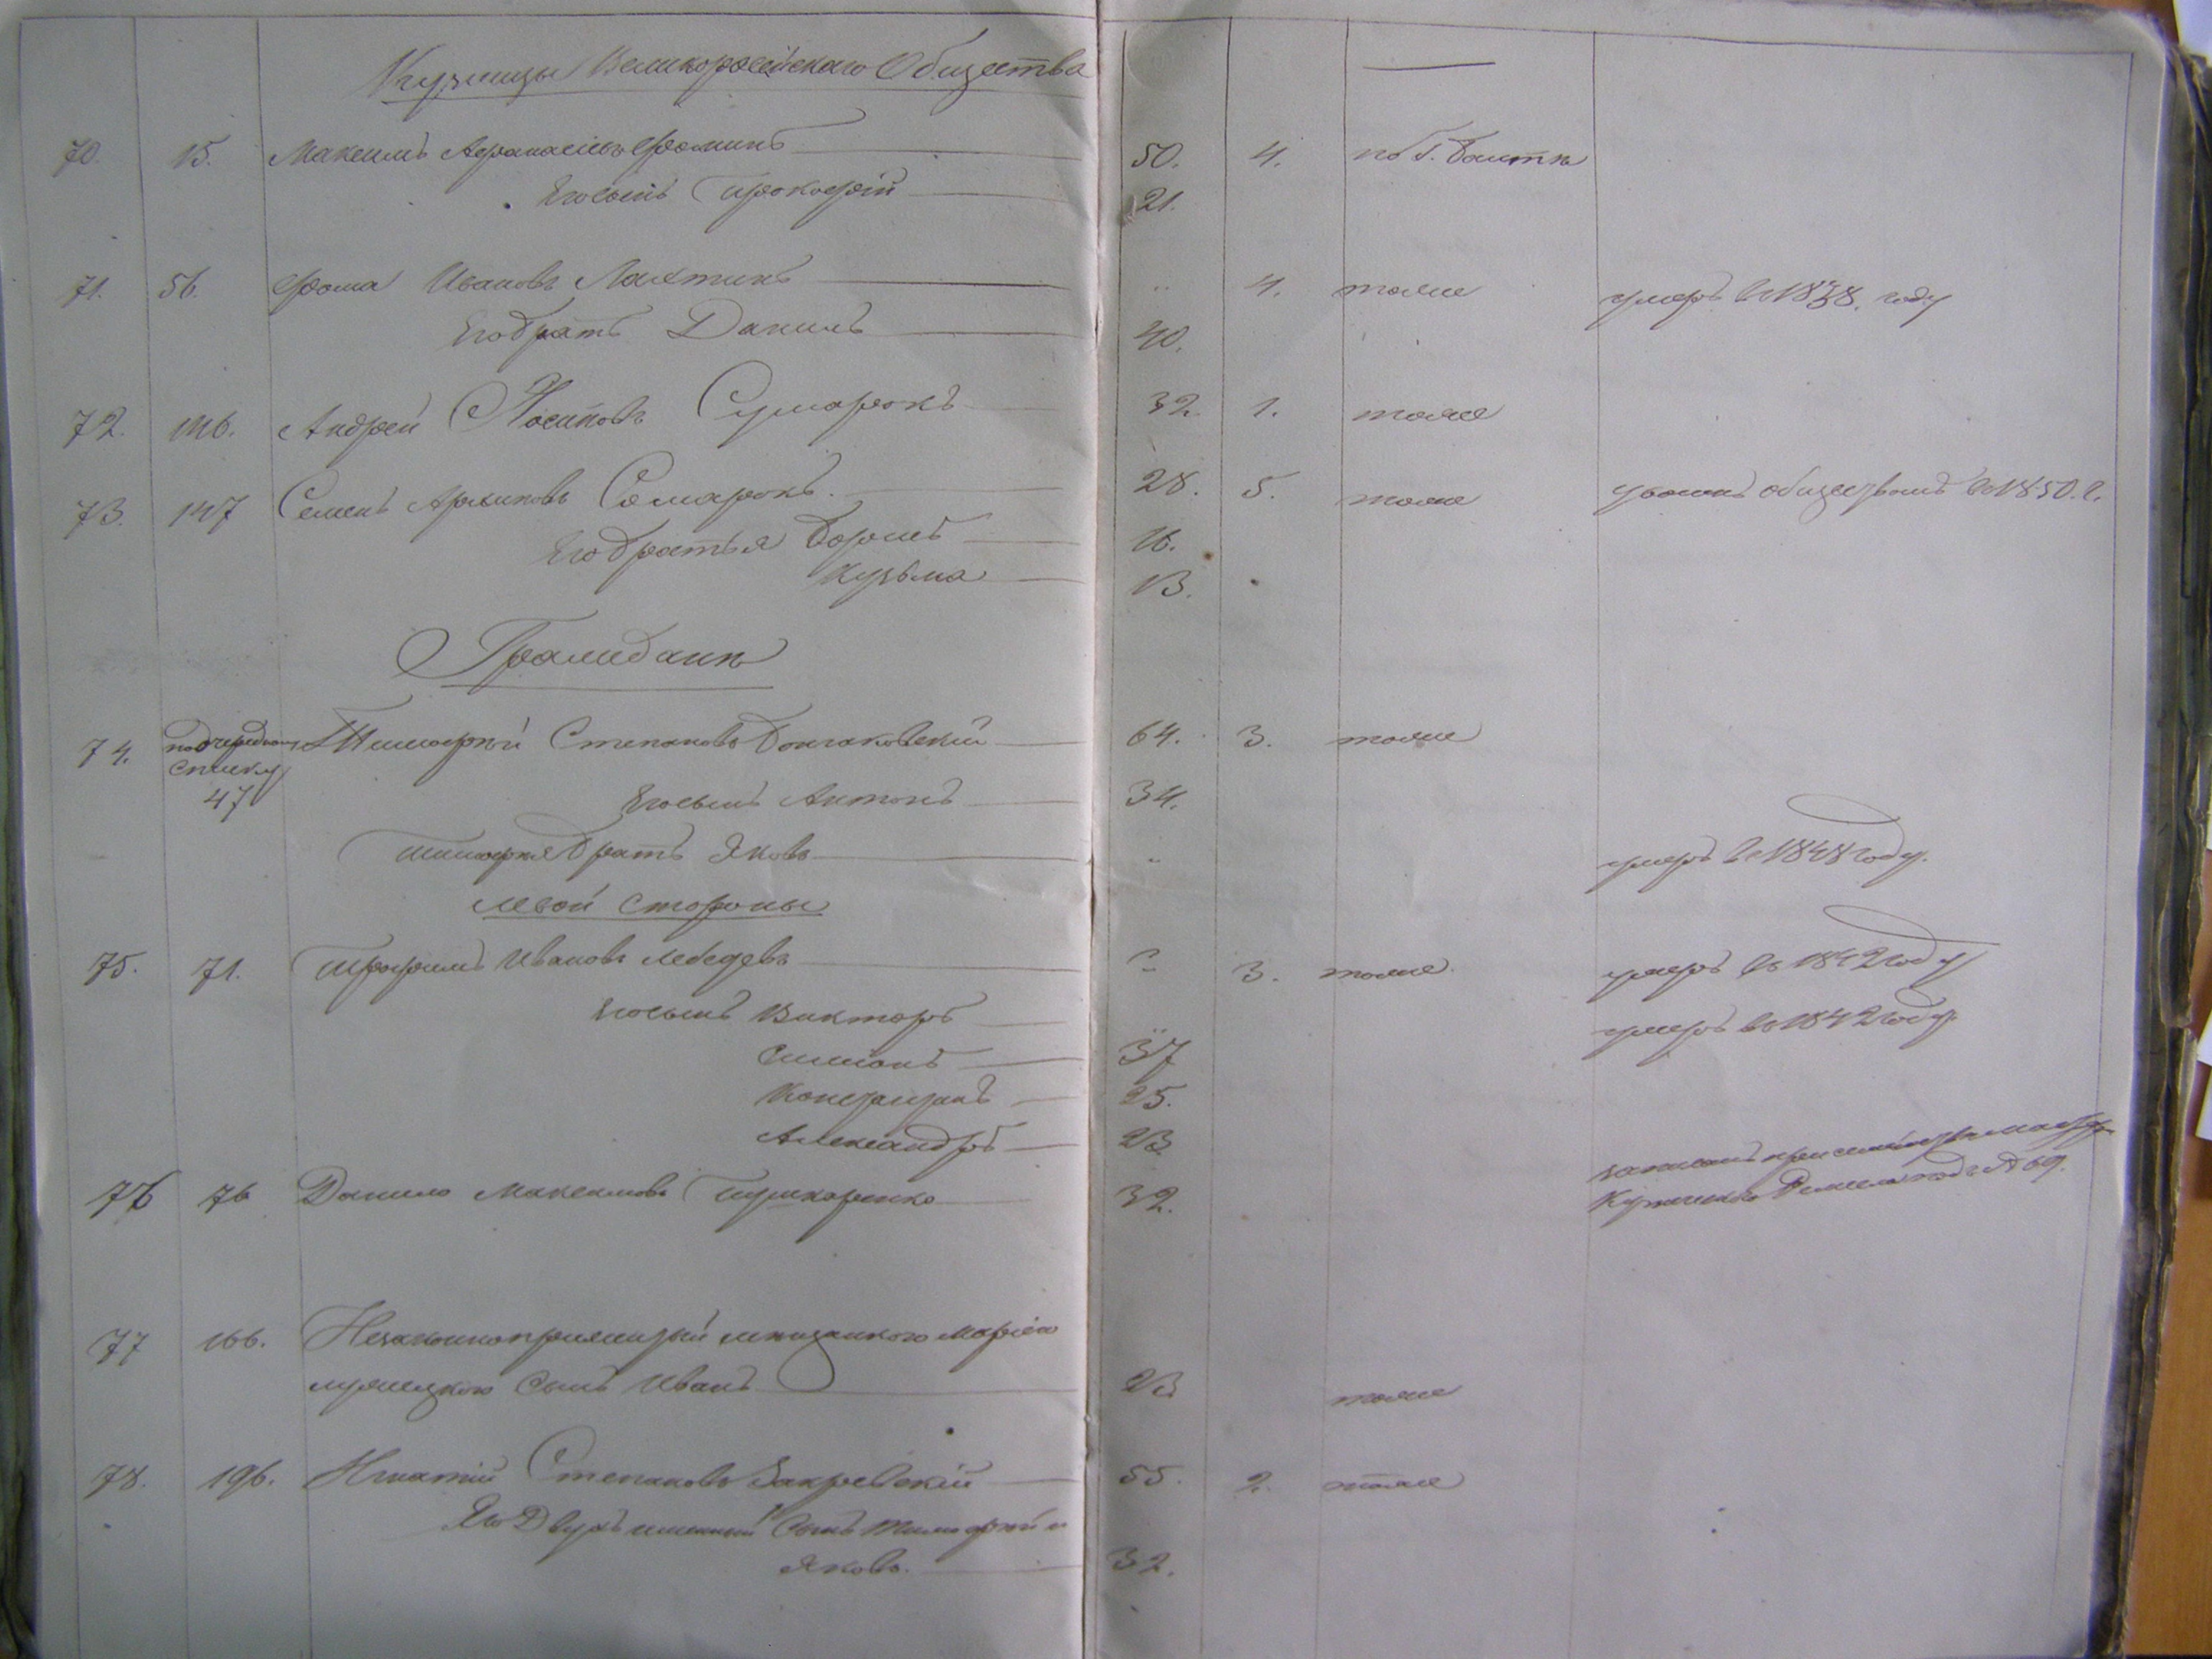 Великороссійскаго Общества
70. 15. Максимъ Афанасьевъ Фоминъ 50. 4. въ г. Балтѣ
Его сынъ Прокофій 21.
71. 56. Фома Ивановъ Лаптинъ " 4. тоже умеръ въ 1838. году
Его братъ Данилъ 40.
72. 146. Андрей Осиповъ Сумарокъ 32. 1. тоже
73. 147 Семенъ Архиповъ Сомарокъ. 28. 5. тоже обществомъ въ 1850. г.
Его братья Борисъ 16.
Кузьма 13.
Граждане
74. по очередному Тимофей Степановъ 64. 3. тоже
списку
47 Его сынъ Антонъ 34.
Тимофея братъ Яковъ " умеръ въ 1848 году.
левой стороны
75. 71. Трофимъ Ивановъ Лебедевъ " 3. тоже умеръ въ 1842 году
Его сынъ Викторъ " умеръ въ 1842 году.
Симіонъ 37
Александръ 23
76 76 Данило Максимовъ Пушкаренко 32. подъ № 69.
77 166. Незаконноприжитый мещанкою Маріею
сынъ Иванъ 23 тоже
78. 196. Игнатій Степановъ Закревскій 55. 2. тоже
Его Двухъименный сынъ Тимофей и
Яковъ. 32.